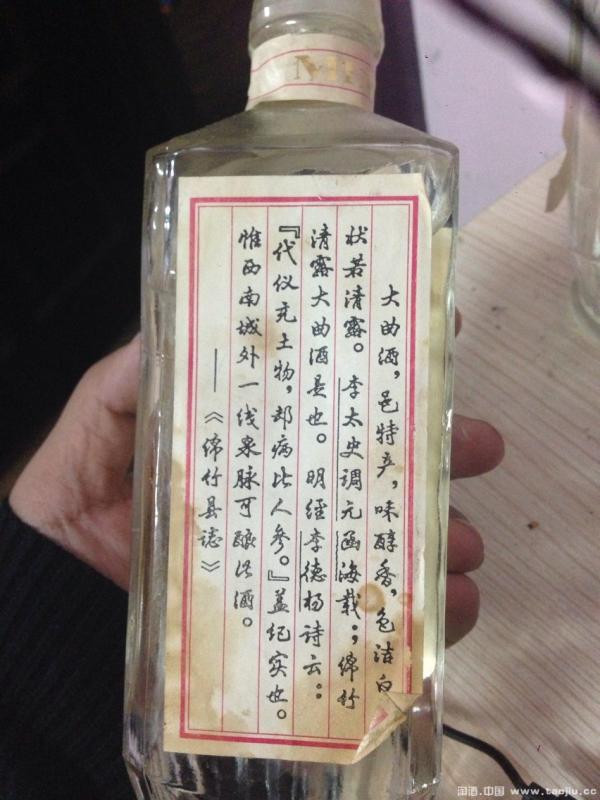 大曲酒，邑特产，味醇香，色洁白
状若清露。李太史调元函海载：绵竹
清露大曲酒是也。明经李德杨诗云：
『代仪充土物，却病比人参。』盖纪实也。
惟西南城外一线泉脉可酿此酒。
——《绵竹县志》
淘酒.中国 www.taojiu.cc